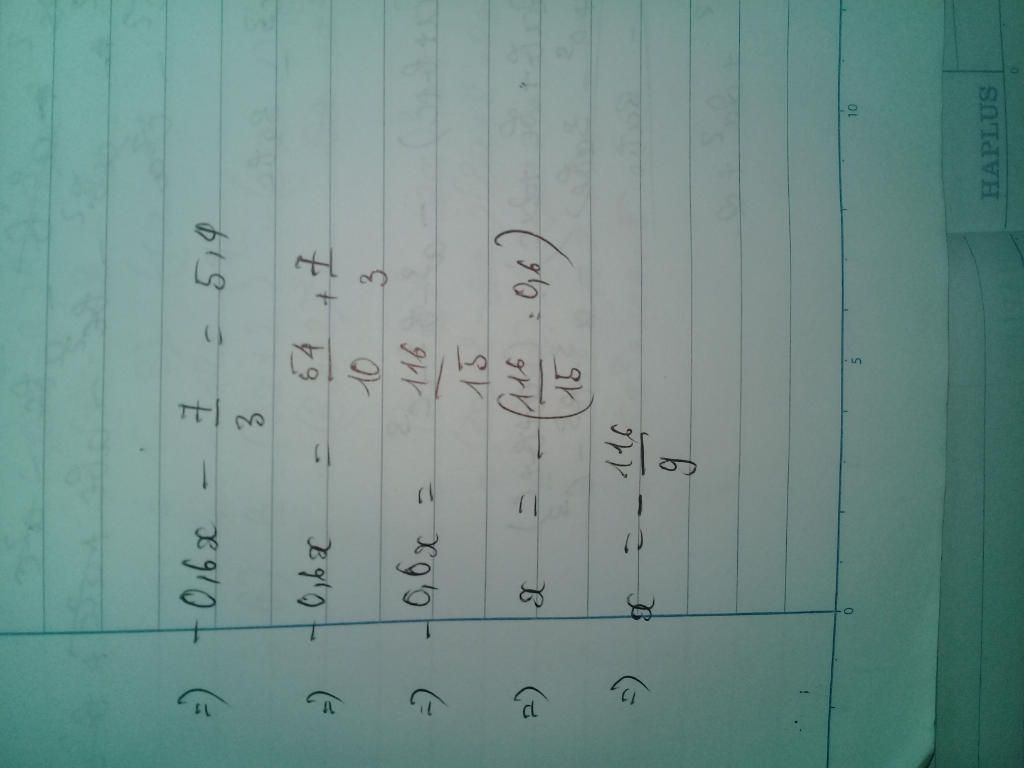 =) - 0,6x - 7/3 = 5,4
=) - 0,6x = 54/10 + 7/3
=) - 0,6x = 116/15
=) x = - (116/15 : 0,6)
=) x = - 116/9
0 5 10
HAPLUS